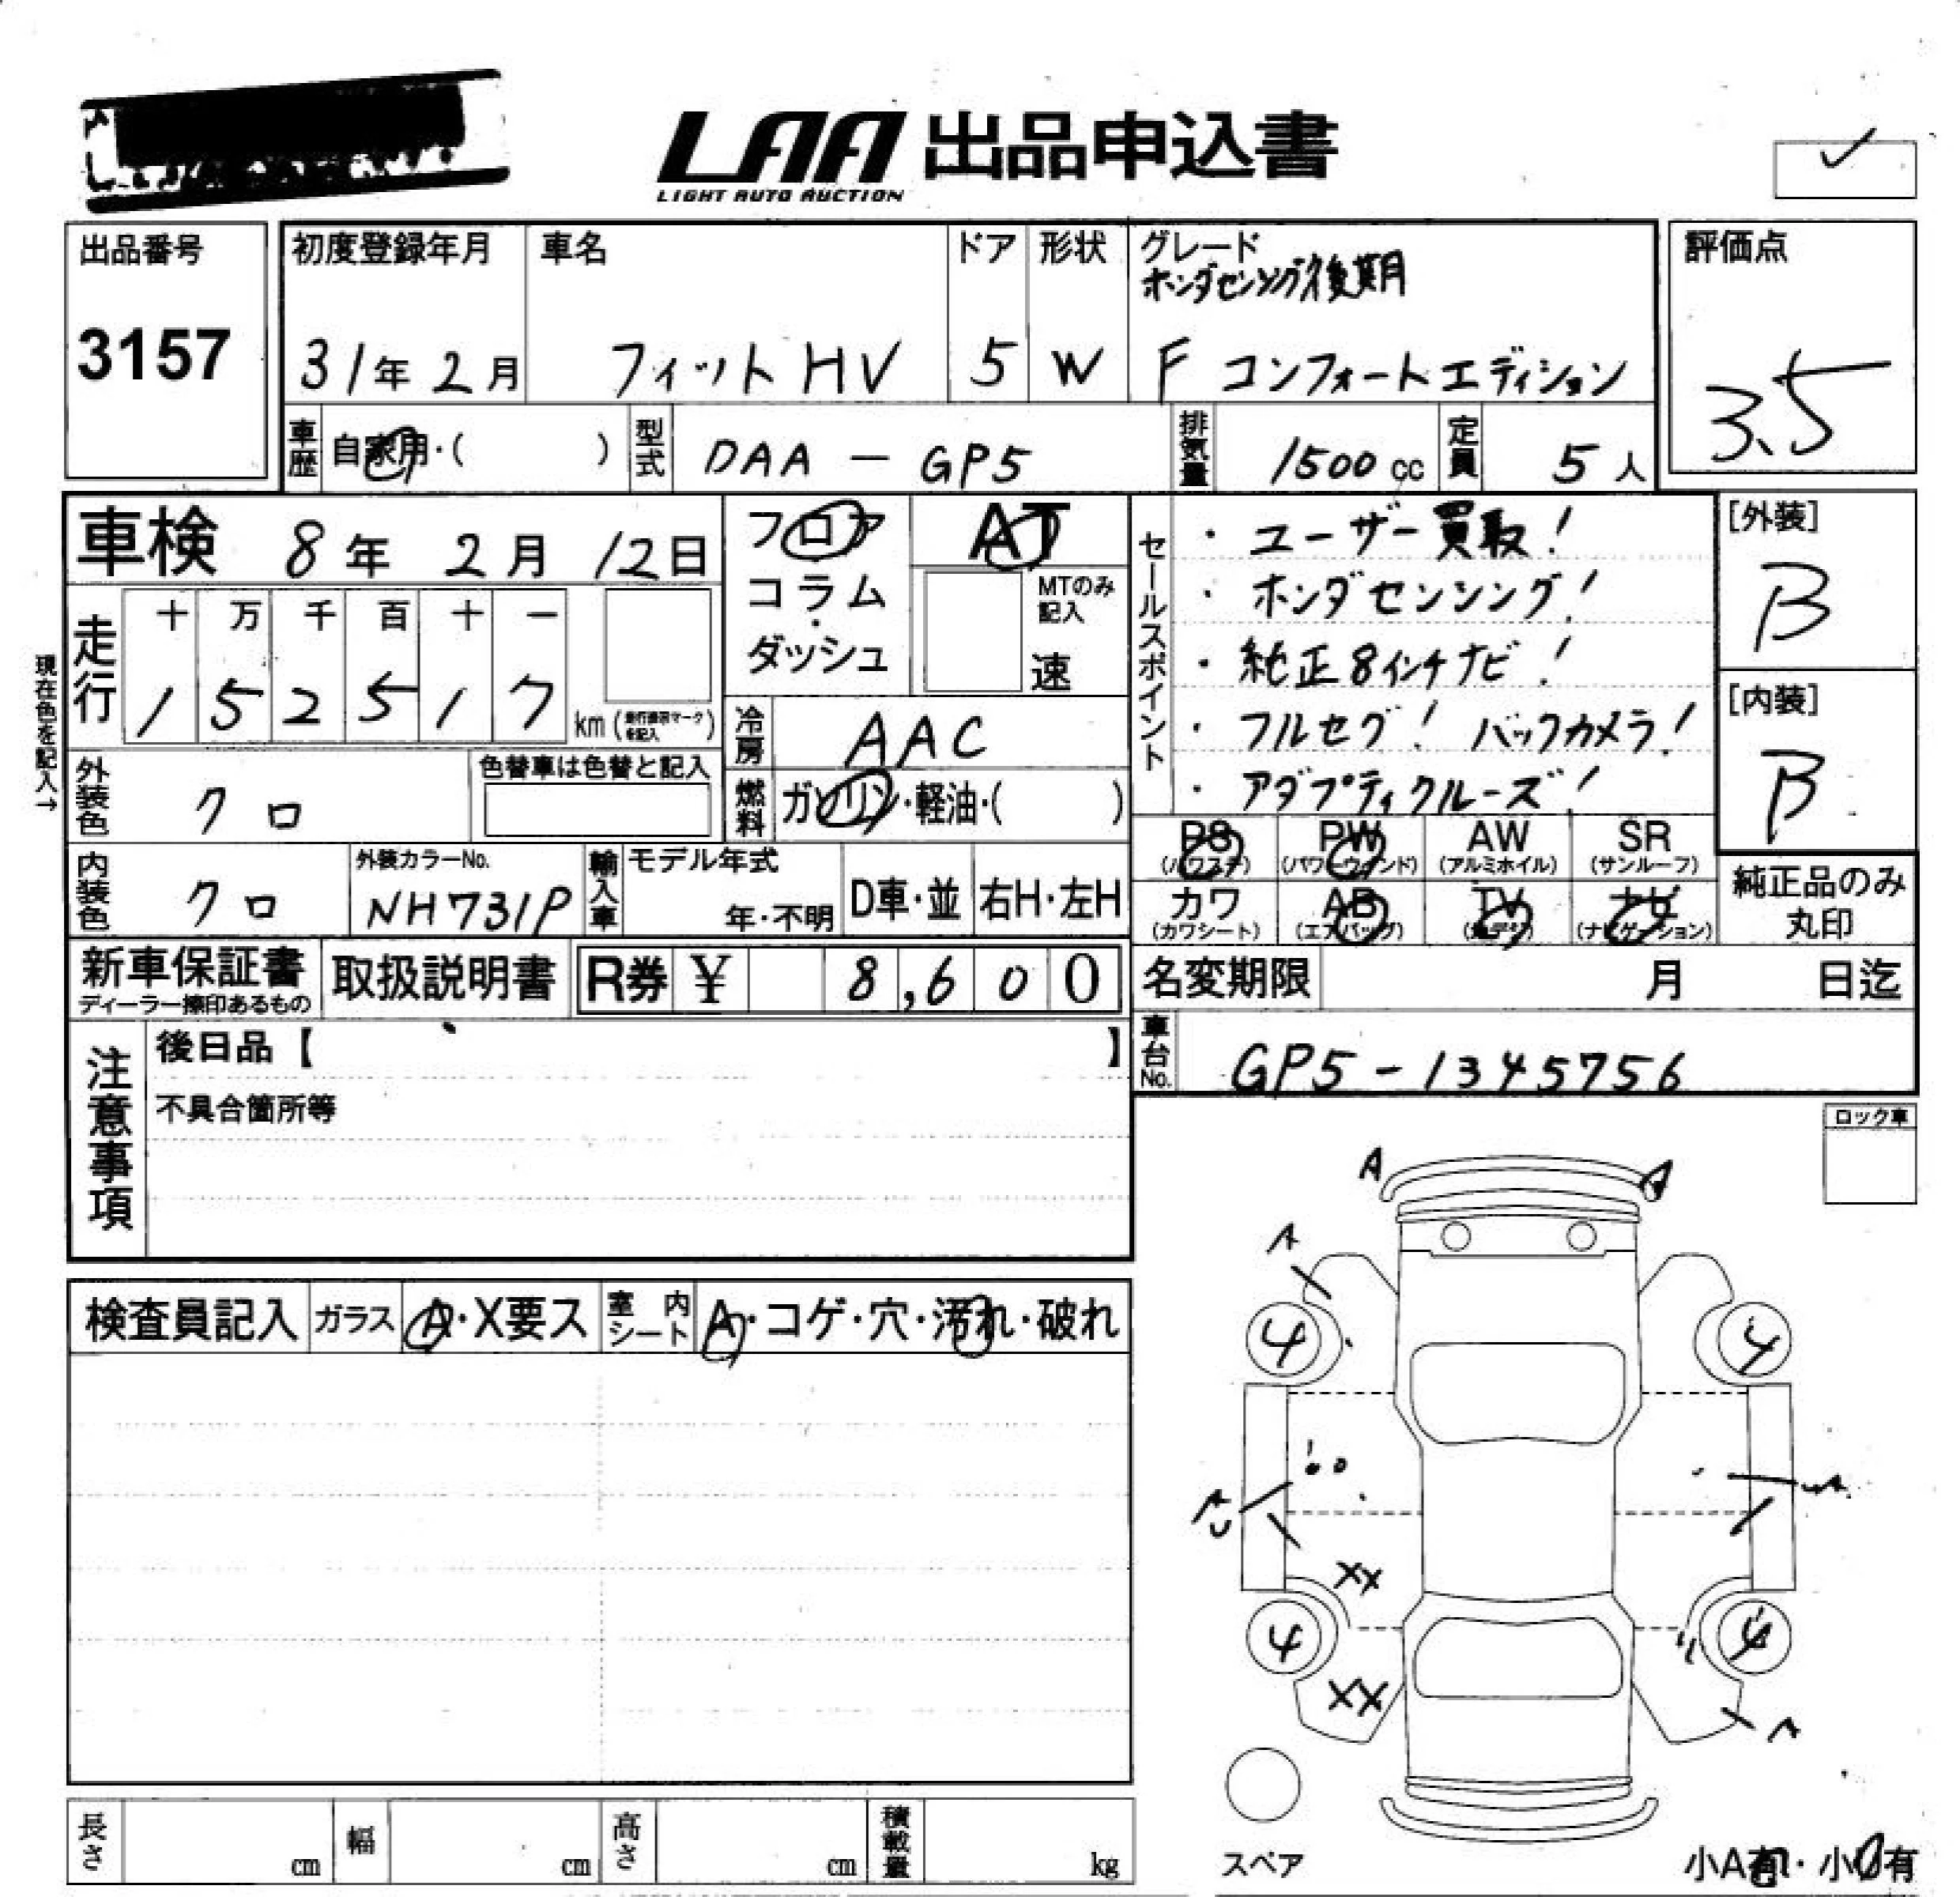 LAA 出品申込書
LIGHT AUTO AUCTION
出品番号
3157
初度登録年月
31年 2月
車名
フィットHV
ドア
5
形状
W
グレード
ホンダセンシング後期
F コンフォートエディション
評価点
3.5
車歴
自家用・( )
型式
DAA - GP5
排気量
1500 cc
定員
5 人
車検 8年 2月 12日
現在色を記入→
走行
十 万 千 百 十 一
1 5 2 5 1 7 km
外装色
クロ
色替車は色替と記入
内装色
クロ
外装カラーNo.
NH731P
輸入車
モデル年式
年・不明
D車・並
右H・左H
フロア
コラム・
ダッシュ
AT
MTのみ
記入
速
冷房
AAC
燃料
ガソリン・軽油・( )
セールスポイント
・ユーザー買取!
・ホンダセンシング!
・純正8インチナビ!
・フルセグ! バックカメラ!
・アダプティクルーズ!
[外装]
B
[内装]
B
PS
(パワステ)
PW
(パワーウィンド)
AW
(アルミホイル)
SR
(サンルーフ)
カワ
(カワシート)
AB
(エアバッグ)
TV
(地デジ)
ナビ
(ナビゲーション)
純正品のみ
丸印
新車保証書
ディーラー捺印あるもの
取扱説明書
R券 ¥ 8,600
名変期限 月 日迄
車台No.
GP5-1345756
注意事項
後日品【 】
不具合箇所等
ロック車
検査員記入
ガラス
A・X要ス
室内
シート
A・コゲ・穴・汚れ・破れ
A
A
A
4
4
A
U
A
XX
4
4
XX
A
スペア
小A有・小U有
長さ
cm
幅
cm
高さ
cm
積載量
kg